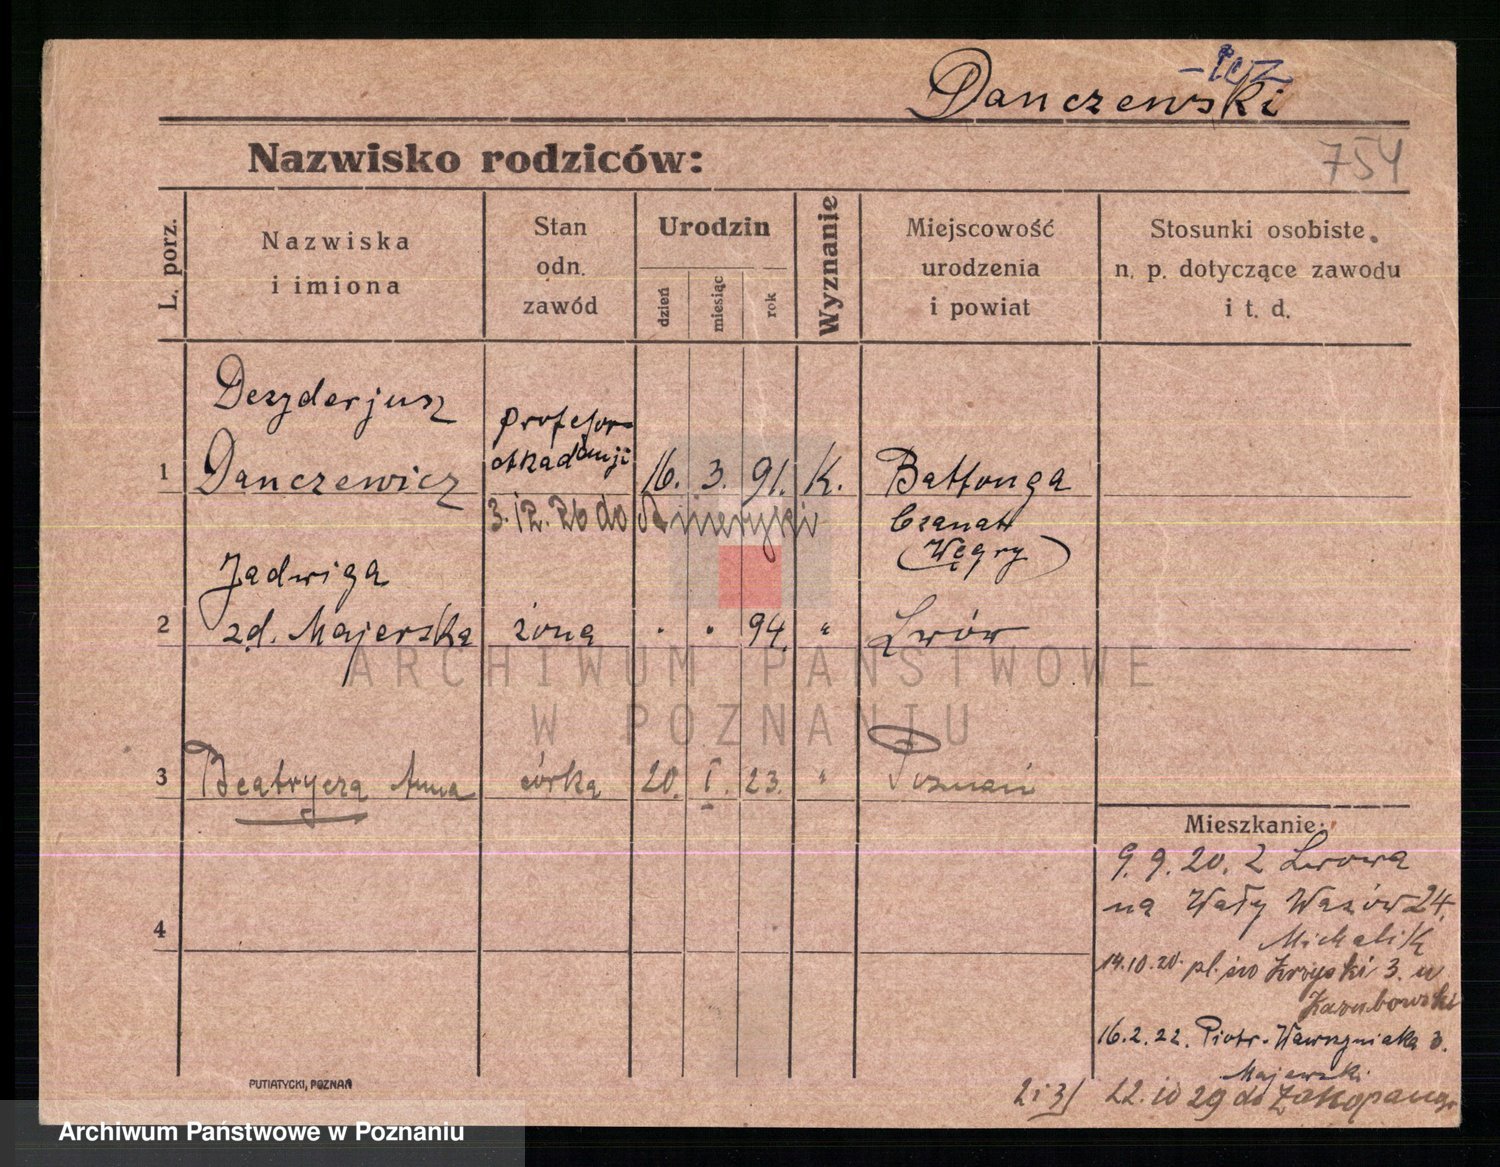 -icz
Danczewski
Nazwisko rodziców:
754
L. porz.
Nazwiska
i imiona
Stan
odn.
zawód
Urodzin
dzień
miesiąc
rok
Wyznanie
Miejscowość
urodzenia
i powiat
Stosunki osobiste.
n. p. dotyczące zawodu
i t. d.
Dezyderjusz
profesor
akademji
1 Danczewicz 16. 3. 91. K. Battonya
3.12.26 do Ameryki Czanad
(Węgry)
Jadwiga
2 zd. Majerska żona . . 94. " Lwów
3 Beatrycza Anna córka 20. I. 23. " Poznań
Mieszkanie:
9. 9. 20. Z Lwowa
na Wały Wazów 24.
Michalik
4
14.10.20. pl. św Krzyski 3. u
16.2.22. Piotr-Wawrzyniaka 3.
Majewski
2 i 3/ 22.10 29 do Zakopanego
PUTIATYCKI, POZNAŃ
ARCHIWUM PAŃSTWOWE
W POZNANIU
Archiwum Państwowe w Poznaniu